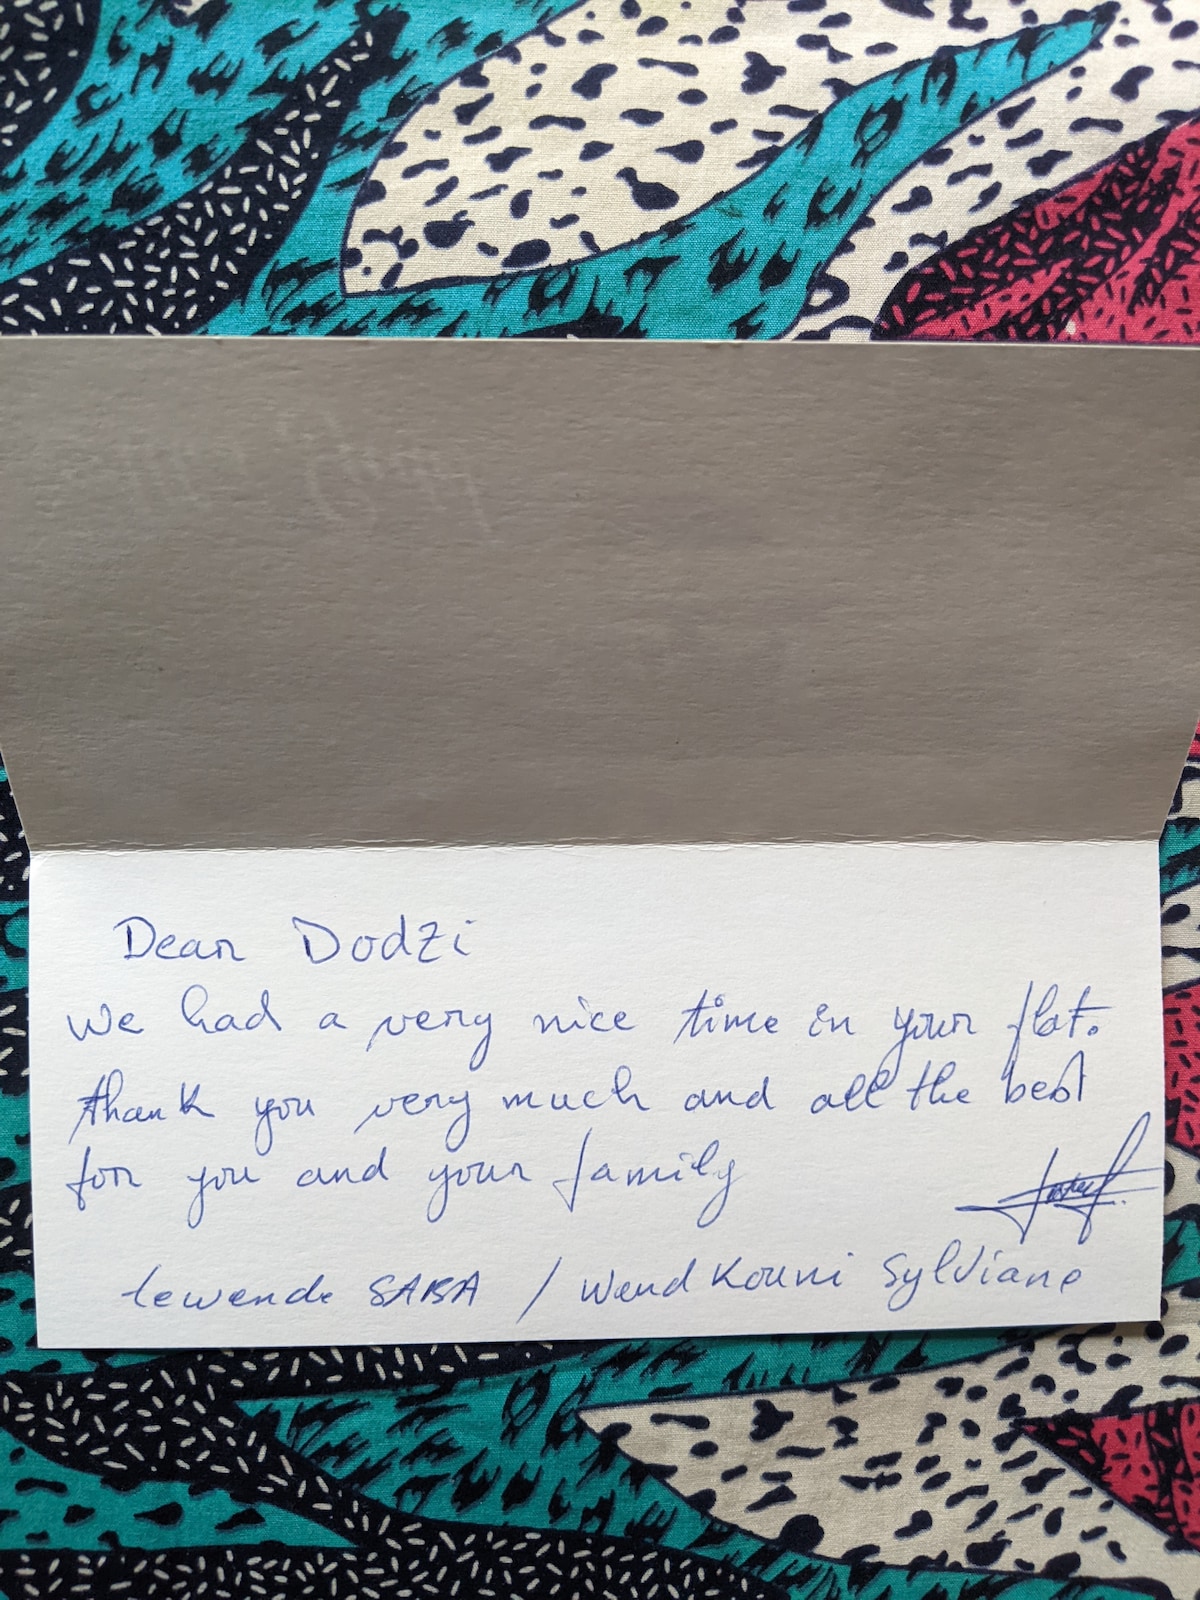 Dear Dodzi
We had a very nice time in your flat.
thank you very much and all the best
for you and your family
tewende SABA / Wend Kouni Sylviane